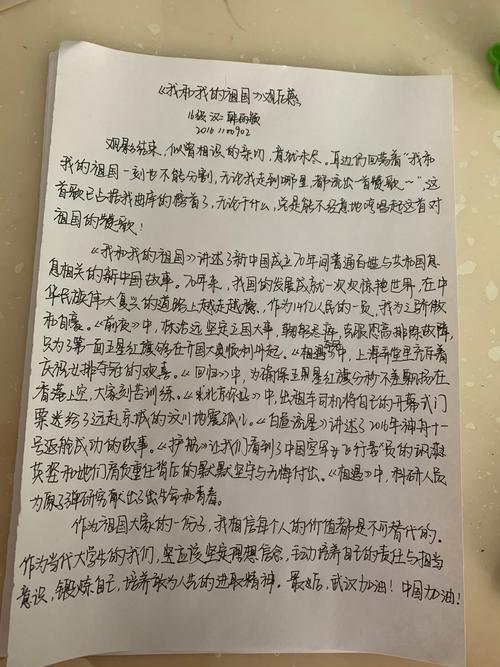 《我和我的祖国》观后感
16级 汉二
20161100902
观影结束，似曾相识的亲切，意犹未尽。耳边仍回荡着“我和
我的祖国一刻也不能分割，无论我走到哪里，都流出一首赞歌～”，这
首歌已占据我曲库的榜首了，无论干什么，总是能不经意地哼唱起这首对
祖国的赞歌！
《我和我的祖国》讲述了新中国成立70年间普通百姓与共和国息
息相关的新中国故事。70年来，我国的发展成就一次次惊艳世界，在中
华民族伟大复兴的道路上越走越稳，作为14亿人民的一员，我为之骄傲
和自豪。《前夜》中，林治远坚定立国大事，克服恐高排除故障，
只为了第一面五星红旗能够在开国大典顺利升起。《相遇》中，上海弄堂里充斥着
庆祝女排夺冠的欢喜。《回归》中，为确保五星红旗分秒不差飘扬在
香港上空，大家刻苦训练。《北京你好》中，出租车司机将自己的开幕式门
票送给了远赴京城的汶川地震孤儿。《白昼流星》讲述了2016年神舟十一
号返航成功的故事。《护航》让我们看到了中国空军女飞行员的飒爽
英姿和她们肩负重任背后的默默坚守与无悔付出。《相遇》中，科研人员
为原子弹研究献出了生命和青春。
作为祖国大家的一份子，我相信每个人的价值都是不可替代的。
作为当代大学生的我们，更应该坚定理想信念，主动培养自己的责任与担当
意识，锻炼自己，培养敢为人先的进取精神。最后，武汉加油！中国加油！